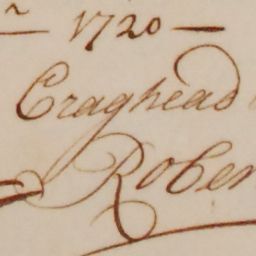 1720 —
Craghead
Rober